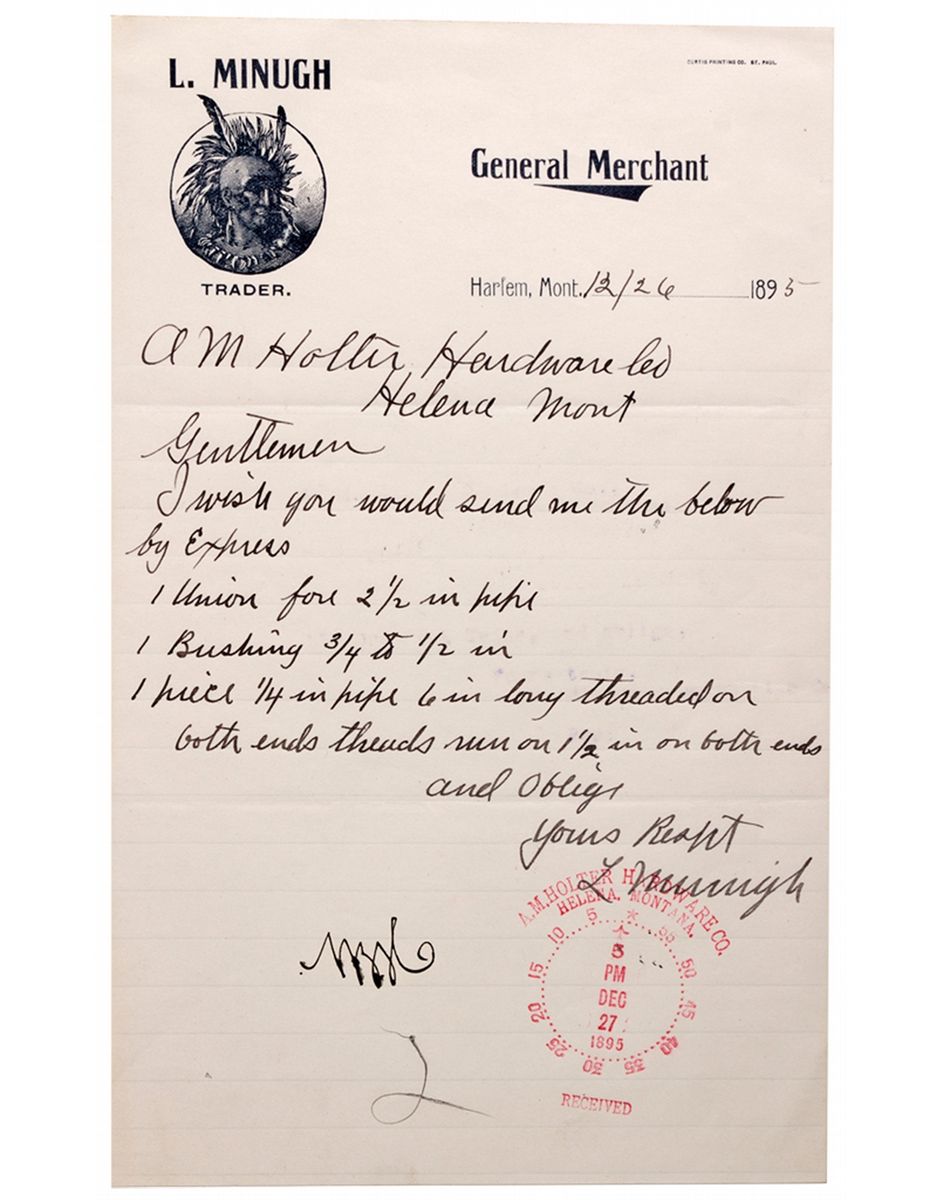 L. MINUGH
CURTIS PRINTING CO. ST. PAUL.
General Merchant
TRADER.
Harlem, Mont. 12/26 1895
A M Holter Hardware Co
Helena Mont
Gentlemen
I wish you would send me the below
by Express
1 Union fore 2 1/2 in pipe
1 Bushing 3/4 to 1/2 in
1 piece 1/4 in pipe 6 in long threaded on
both ends theads run on 1 1/2 in on both ends
and Oblige
Yours Respt
L Minugh
A.M. HOLTER HARDWARE CO.
HELENA, MONTANA.
5 55 50 45 40 35 30 25 20 15 10
5
PM
DEC
27
1895
RECEIVED